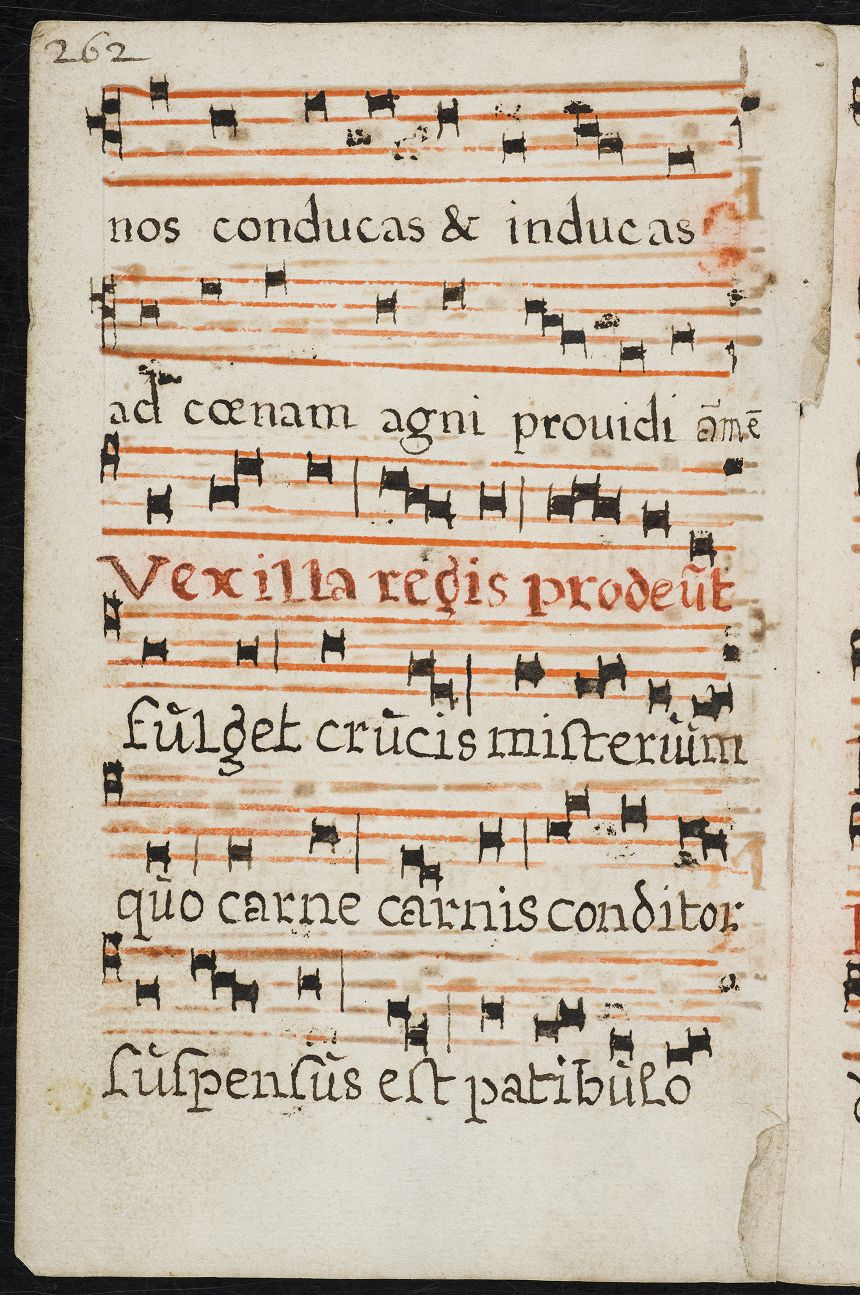 262
nos conducas & inducas
ad cœnam agni prouidi āmē
Vexilla regis prodeūt
ſūlget crūcis miſteriūm
qūo carne carnis conditor
ſūſpenſūs eſt patibūlo